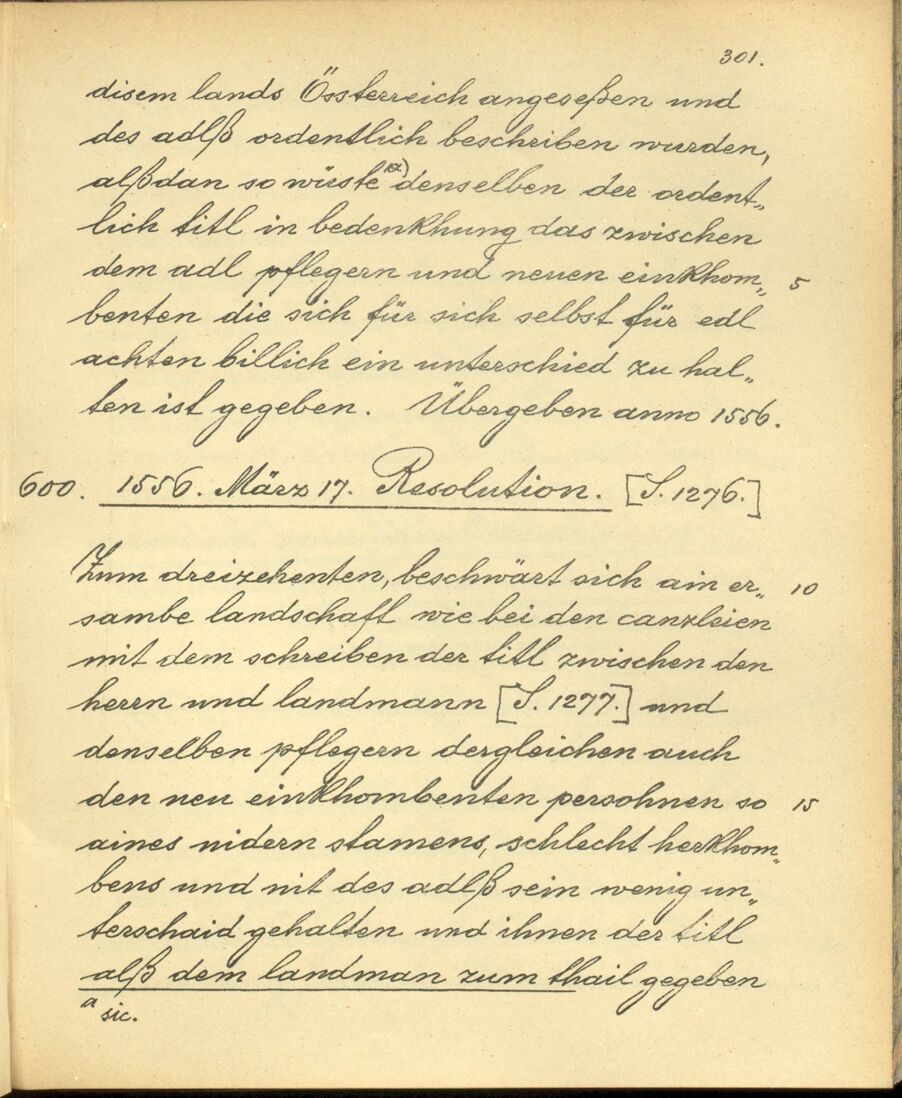 301.
disem lands Össterreich angeseßen und
des adlß ordentlich beschreiben wurden,
alßdan so würste a) denselben der ordent„
lich titl in bedenkhung das zwischen
dem adl pflegern und neuen einkhom„ 5
benten die sich für sich selbst für edl
achten billich ein unterschied zu hal„
ten ist gegeben. Übergeben anno 1556.
600. 1556. März 17. Resolution. [S. 1276.]
Zum dreizehenten, beschwärt sich ain er„ 10
sambe landschaft wie bei den canzleien
mit dem schreiben der titl zwischen den
herrn und landmann [S. 1277.] und
denselben pflegern dergleichen auch
den neu einkhombenten persohnen so 15
aines nidern stamens, schlecht herkhom„
bens und nit des adlß sein wenig un„
terschaid gehalten und ihnen der titl
alß dem landman zum thail gegeben
a sic.